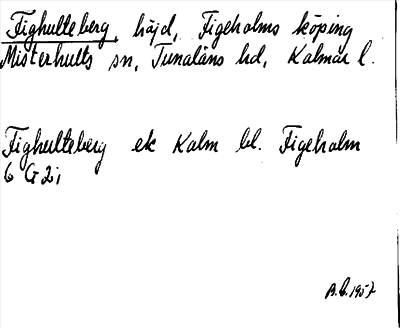 Fighulteberg, höjd, Figeholms köping
Misterhults sn, Tunaläns hd, Kalmar l.
Fighulteberg ek Kalm bl. Figeholm
6 G 2i
1957